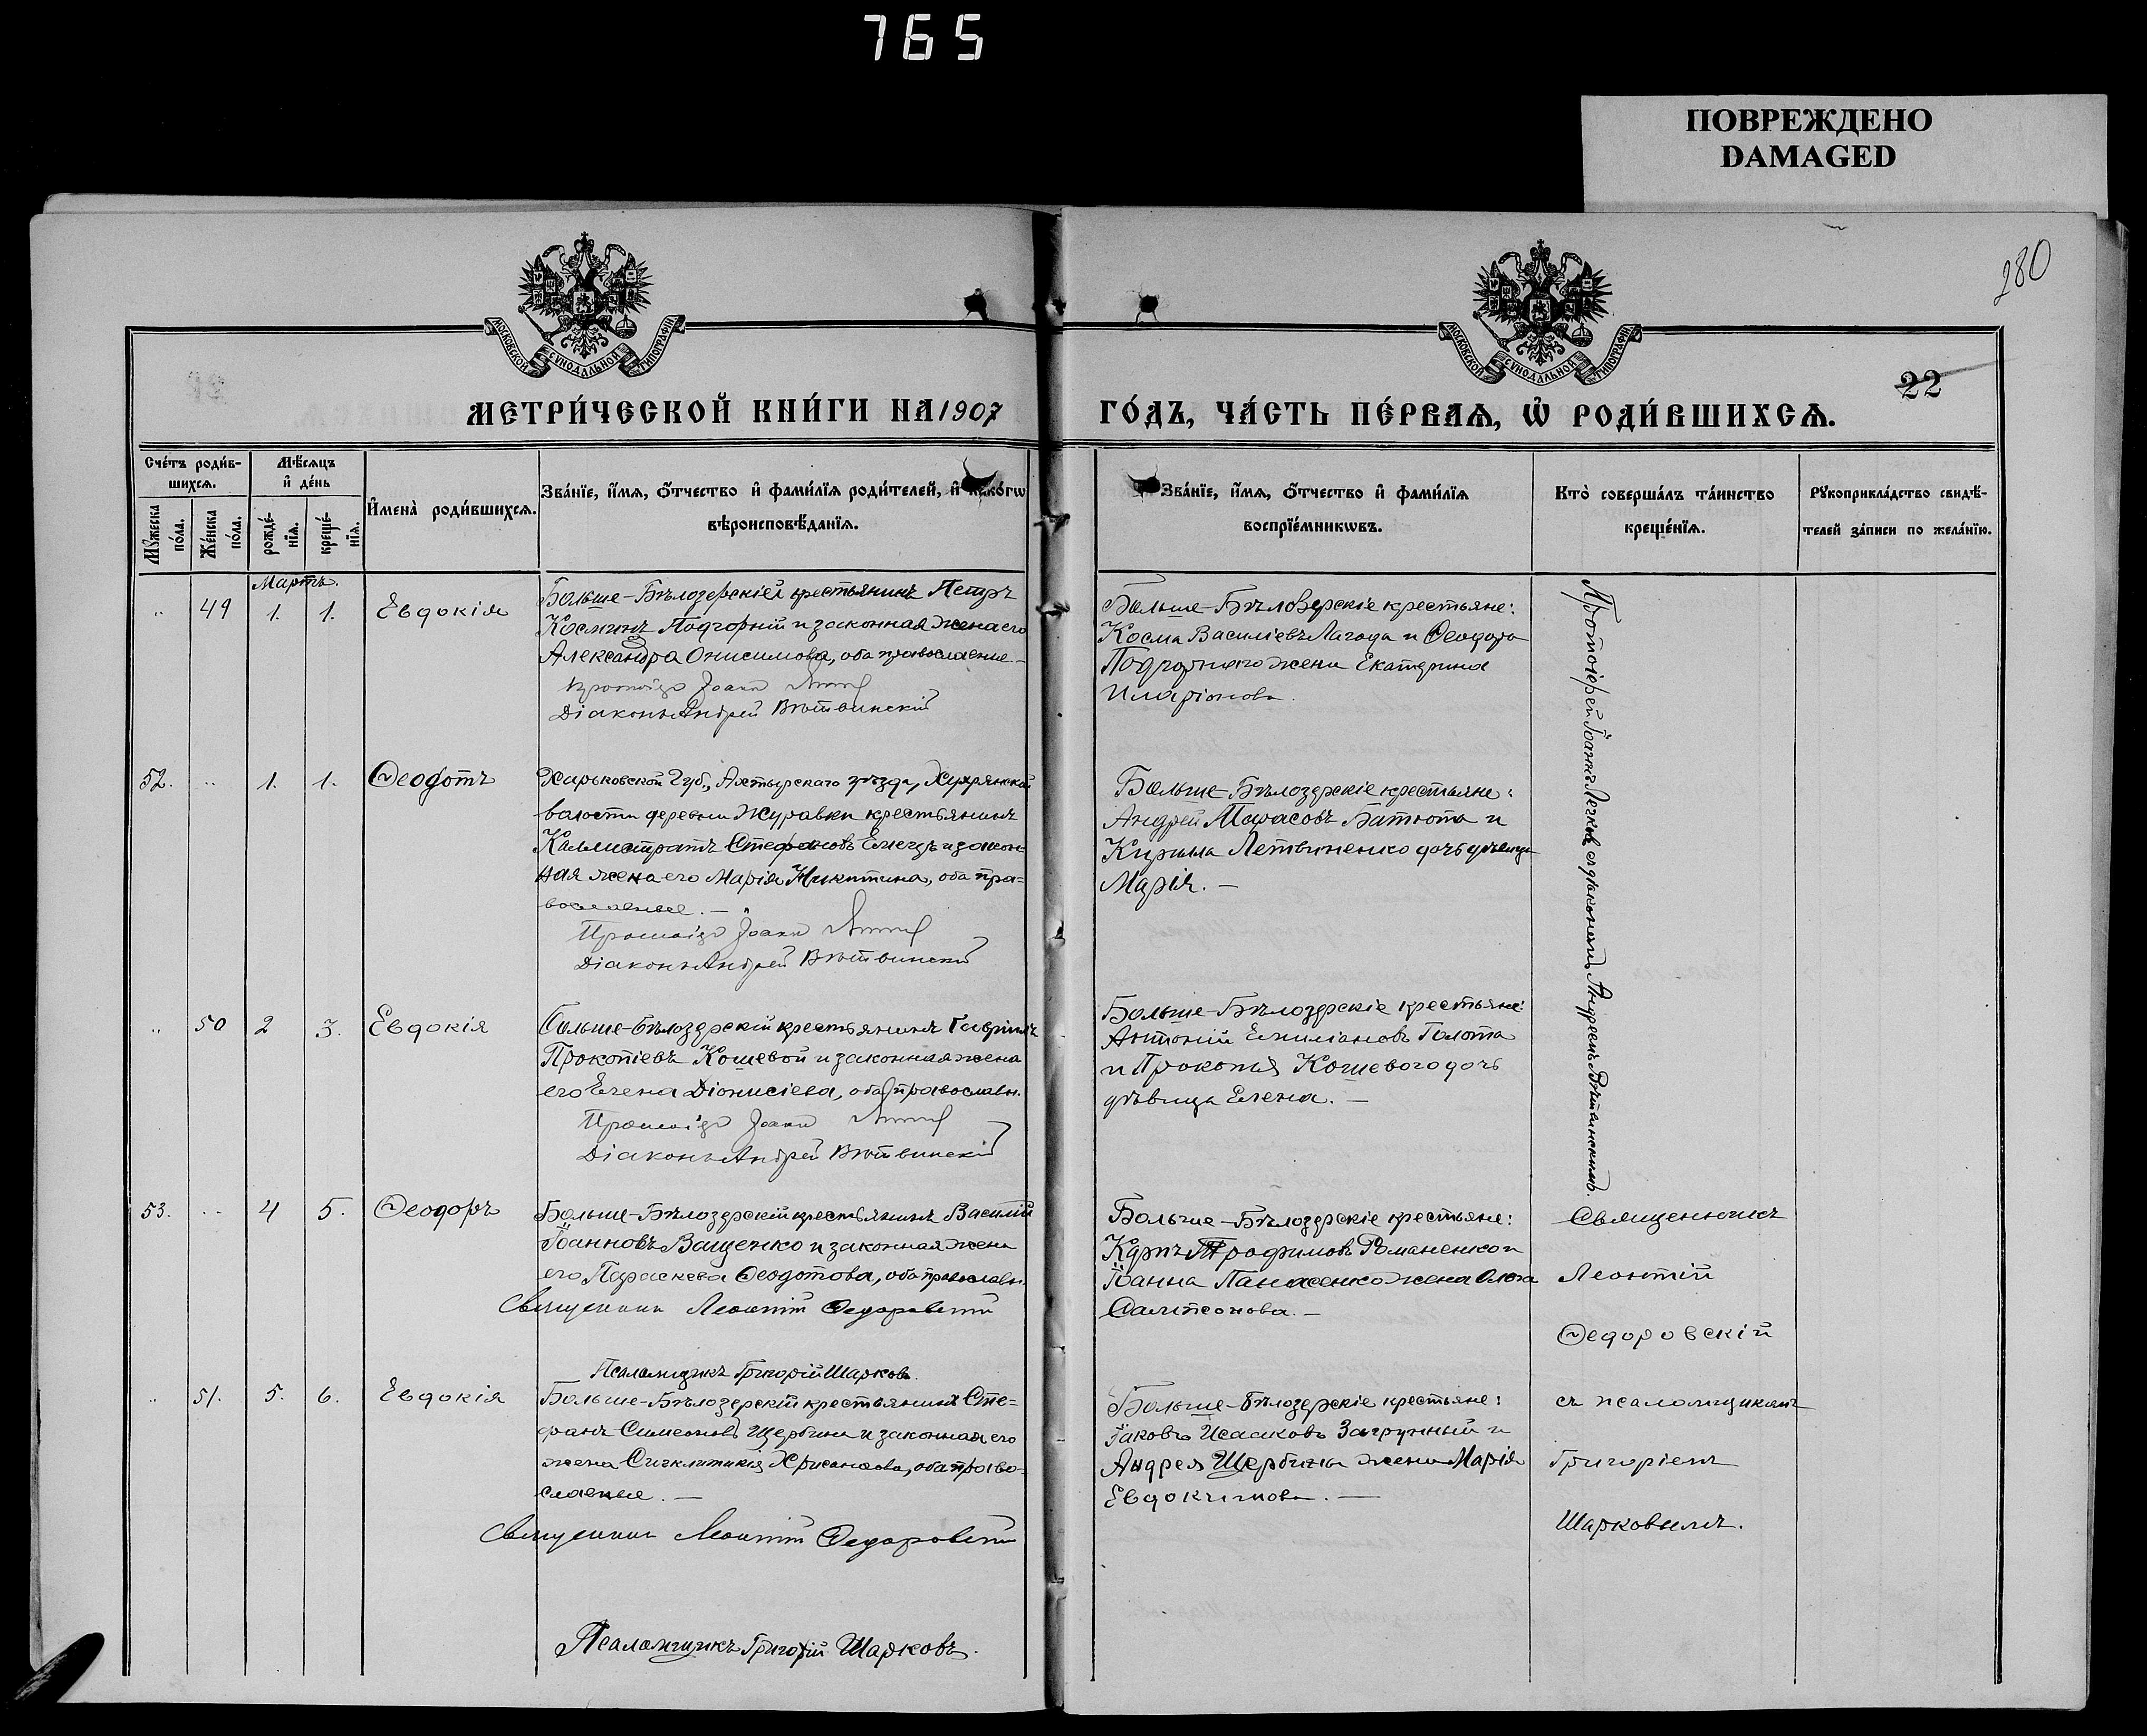 765
ПОВРЕЖДЕНО
DAMAGED
280
МОСКОВСКОЙ СѴНОДАЛЬНОЙ ТИПОГРАФІИ
МОСКОВСКОЙ СѴНОДАЛЬНОЙ ТИПОГРАФІИ
22
МЕТРИ́ЧЕСКОЙ КНИ́ГИ НА 1907
ГО́ДЪ, ЧА́СТЬ ПЕ́РВАѦ, Ѽ РОДИ́ВШИХСѦ.
Сче́тъ роди́в-
шихсѧ.
Мꙋ́жеска по́ла.
Же́нска по́ла.
Мѣ́сѧцъ
и҆ де́нь
рожде́-
нїѧ.
креще́-
нїѧ.
И҆мена̀ роди́вшихсѧ.
Зва́нїе, и҆́мѧ, ѻ҆́тчество и҆ фами́лїѧ роди́телей, и҆ како́гѡ
вѣроисповѣ́данїѧ.
Зва́нїе, и҆́мѧ, ѻ҆́тчество и҆ фами́лїѧ
воспрїе́мникѡвъ.
Кто̀ соверша́лъ та́инство
креще́нїѧ.
Рꙋкоприкла́дство свидѣ́-
телей за́писи по жела́нїю.
Мартъ.
" 49 1. 1. Евдокія
Больше-Бѣлозерскій крестьянинъ Петръ
Косминъ Подгорній и законная жена его
Александра Онисимова, оба православные.–
Діаконъ Андрей Вѣтвинскій
Больше-Бѣлозерскіе крестьяне:
Косма Василіевъ Лагода и Ѳеодора
Подгорнаго жена Екатерина
Иларіонова.
Протоіерей Іоаннъ съ діакономъ Андреемъ Вѣтвинскимъ.
52. " 1. 1. Ѳеодотъ
Харьковской Губ., Ахтырскаго уѣзда, Хухрянской
волости деревни Журавки крестьянинъ
Каллистратъ Стефановъ Емецъ и закон-
ная жена его Марія Никитина, оба пра-
вославные.–
Протоіер Іоанн
Діаконъ Андрей Вѣтвинскій
Больше-Бѣлозерскіе крестьяне:
Андрей Тарасовъ Батюта и
Кирилла Летвиненко дочь дѣвица
Марія.–
" 50 2 3. Евдокія
Больше-Бѣлозерскій крестьянинъ Гавріилъ
Прокопіевъ Кошевой и законная жена
его Елена Діонисіева, оба православн.
Протоіер Іоанн
Діаконъ Андрей Вѣтвинскій
Больше-Бѣлозерскіе крестьяне:
Антоній Емиліановъ Голота
и Прокопія Кошевого дочь
дѣвица Елена.–
53. " 4 5. Ѳеодоръ
Больше-Бѣлозерскій крестьянинъ Василій
Іоанновъ Ващенко и законная жена
его Параскева Ѳеодотова, оба православн.
Священник Леонтій Ѳедоровскій
Псаломщикъ Григорій Шарковъ.
Больше-Бѣлозерскіе крестьяне:
Карпъ Трофимовъ Романенко и
Іоанна Панасенко жена Ольга
Сампсонова.–
Священникъ
Леонтій
Ѳедоровскій
" 51. 5. 6. Евдокія
Больше-Бѣлозерскій крестьянинъ Сте-
фанъ Симеоновъ Щербина и законная его
жена Сигклитикія Хрисанѳова, оба право-
славные.–
Священник Леонтій Ѳедоровскій
Псаломщикъ Григорій Шарковъ.
Больше-Бѣлозерскіе крестьяне:
Іаковъ Исааковъ Загрунный и
Андрея Щербины жена Марія
Евдокимова.–
съ псаломщикомъ
Григоріемъ
Шарковымъ.